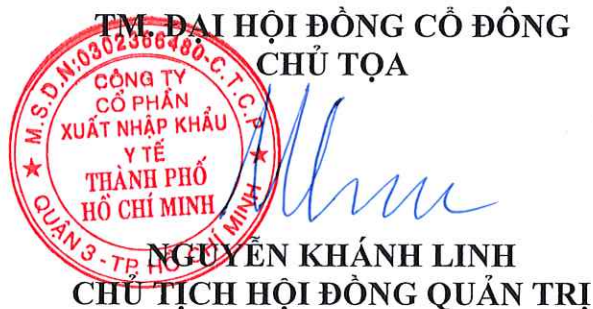 TM. ĐẠI HỘI ĐỒNG CỔ ĐÔNG
CHỦ TỌA
M.S.D.N:0302366480-C.T.C.P
CÔNG TY
CỔ PHẦN
XUẤT NHẬP KHẨU
Y TẾ
THÀNH PHỐ
HỒ CHÍ MINH
QUẬN 3 - TP. HỒ CHÍ MINH
NGUYỄN KHÁNH LINH
CHỦ TỊCH HỘI ĐỒNG QUẢN TRỊ